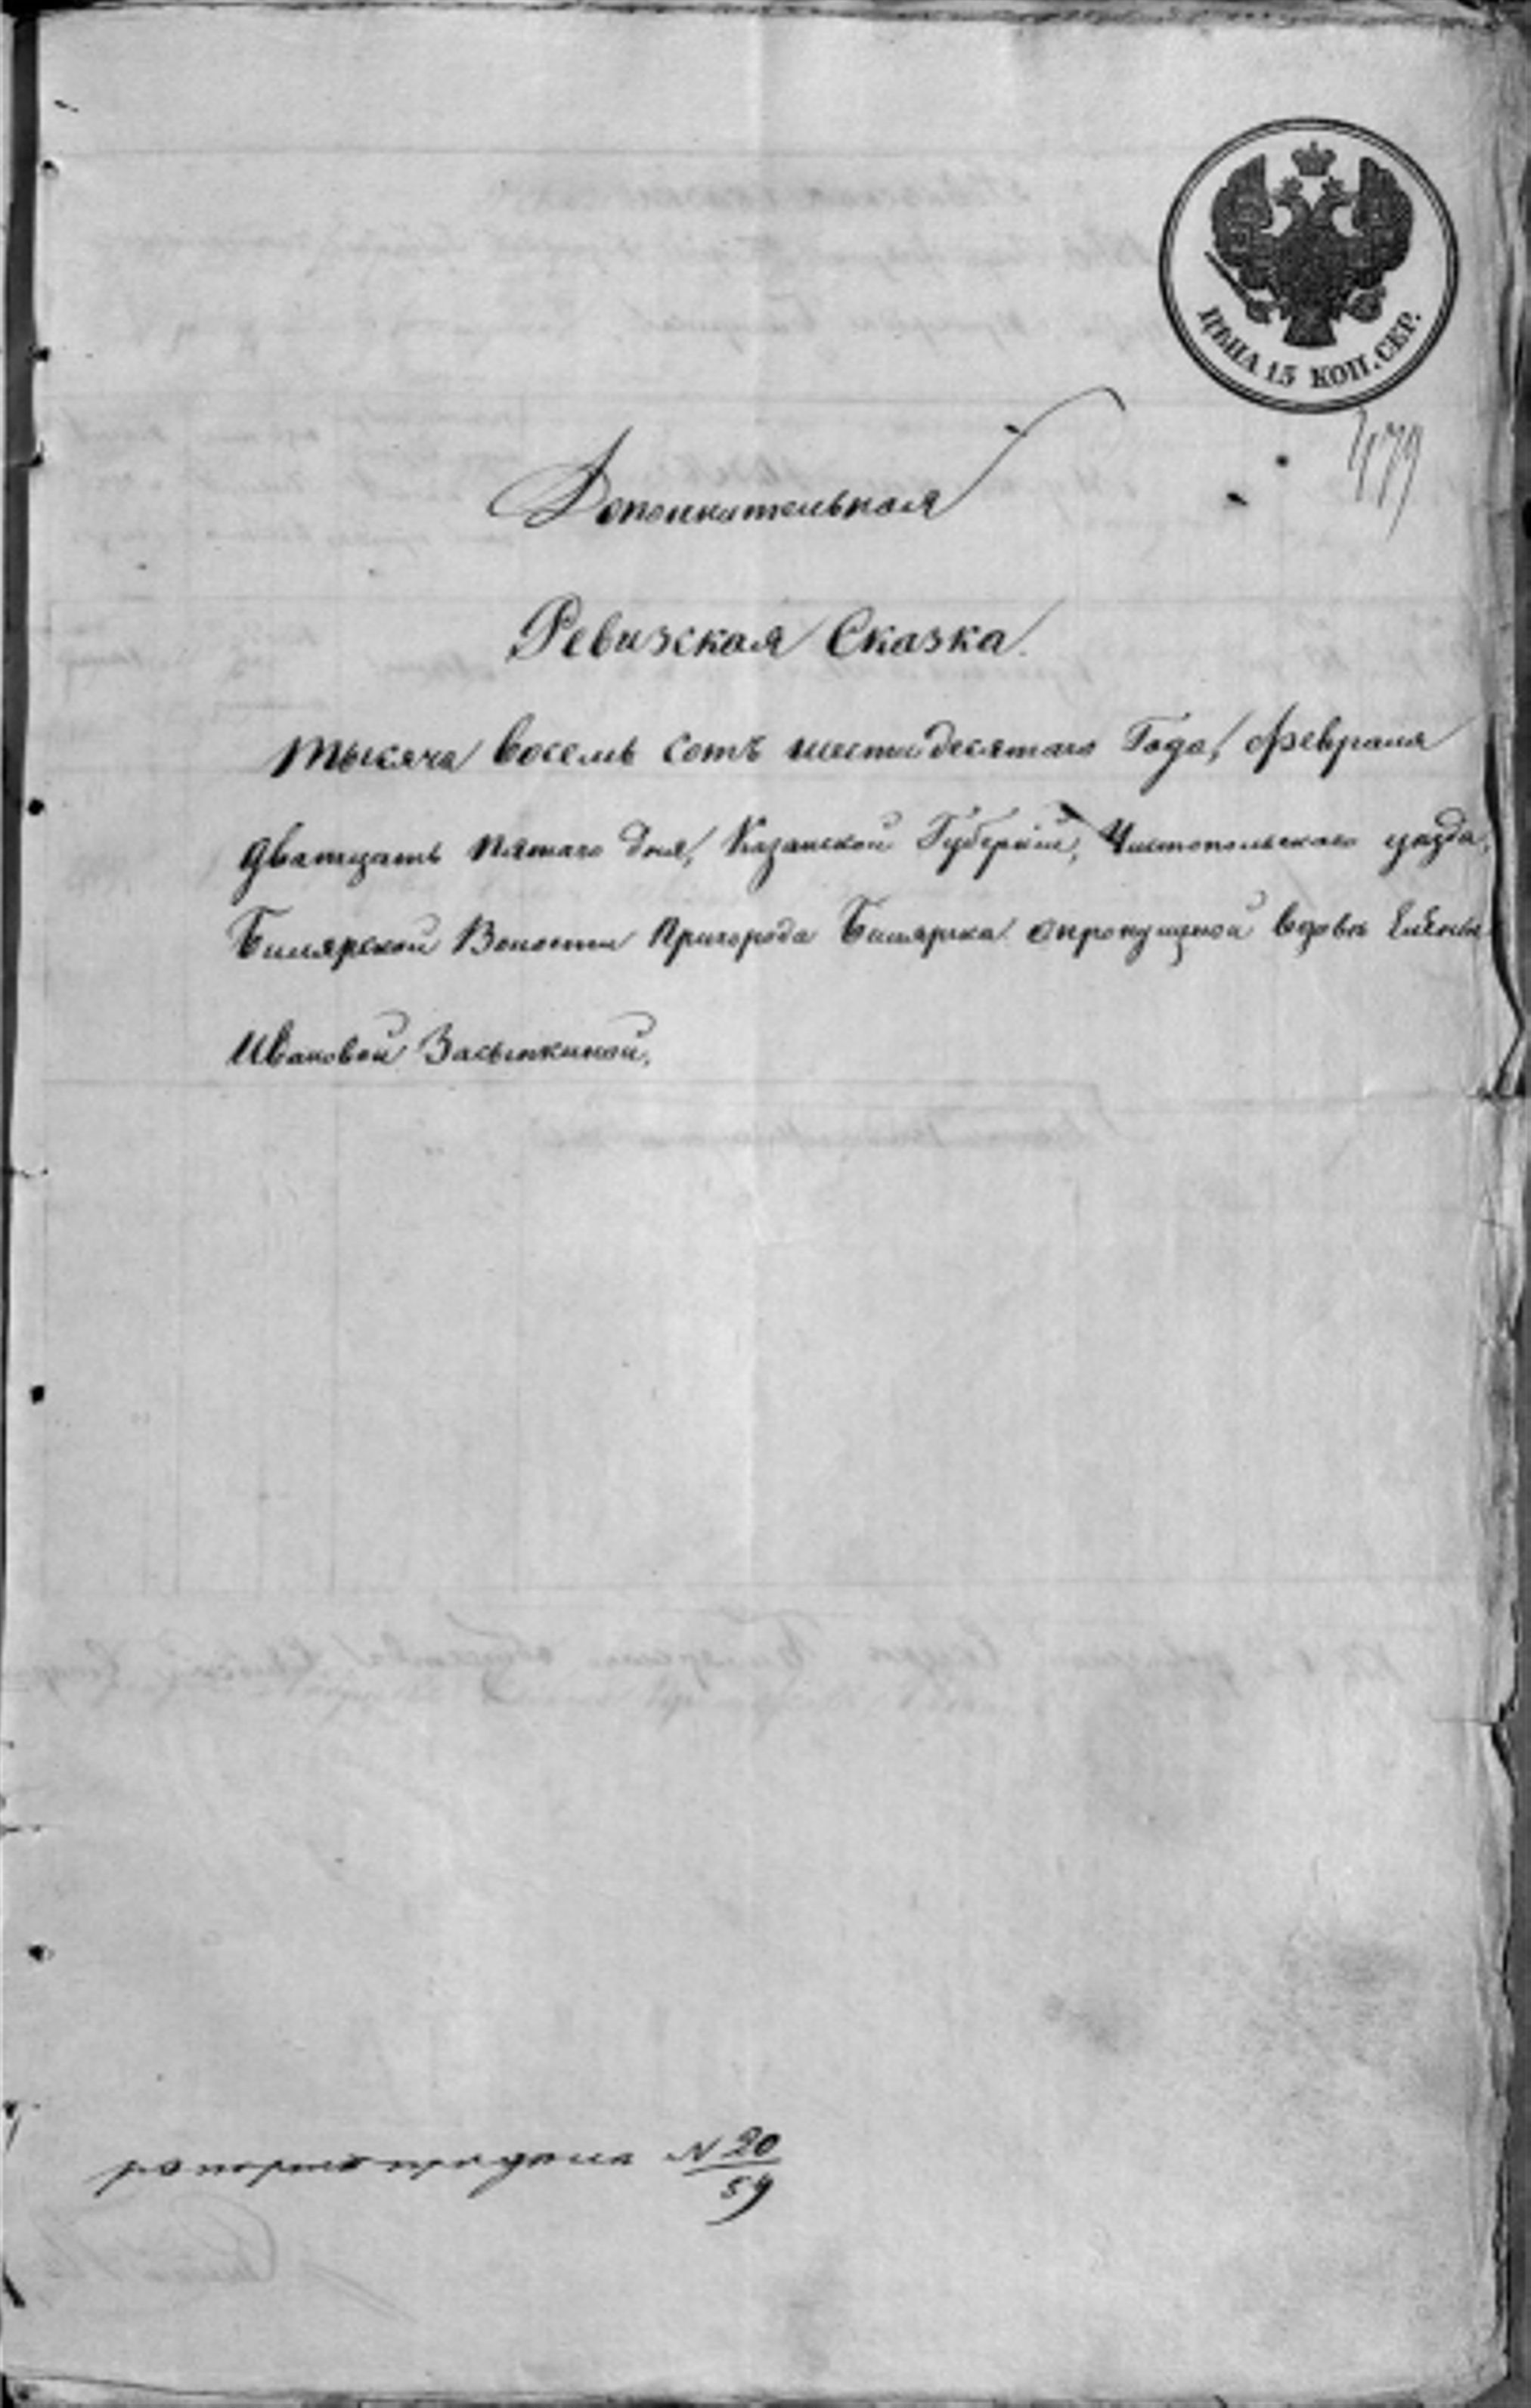 ЦѢНА 15 КОП. СЕР.
479
Дополнительная
Ревизская Сказка.
тысяча восемь сотъ шестидесятаго Года, февраля
дватцать пятаго дня, Казанской Губерніи, Чистопольскаго уезда,
Билярской Волости пригорода Билярска о пропущеной вдове
Ивановой Засыпкиной,
№ 20
59